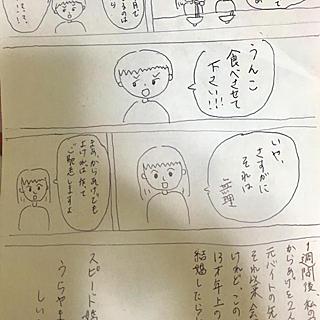 月で
るのは
うんこ
食べさせて
下さい!!!
いや、
さすがに
それは
無理
まあ、からあげでも
よければ作って
ご馳走しますよ
1週間後 私の
からあげを2人
元バイトの先
それ以来会
けれど、この
13才年上の
結婚したら
スピード婚
うらやま
しい